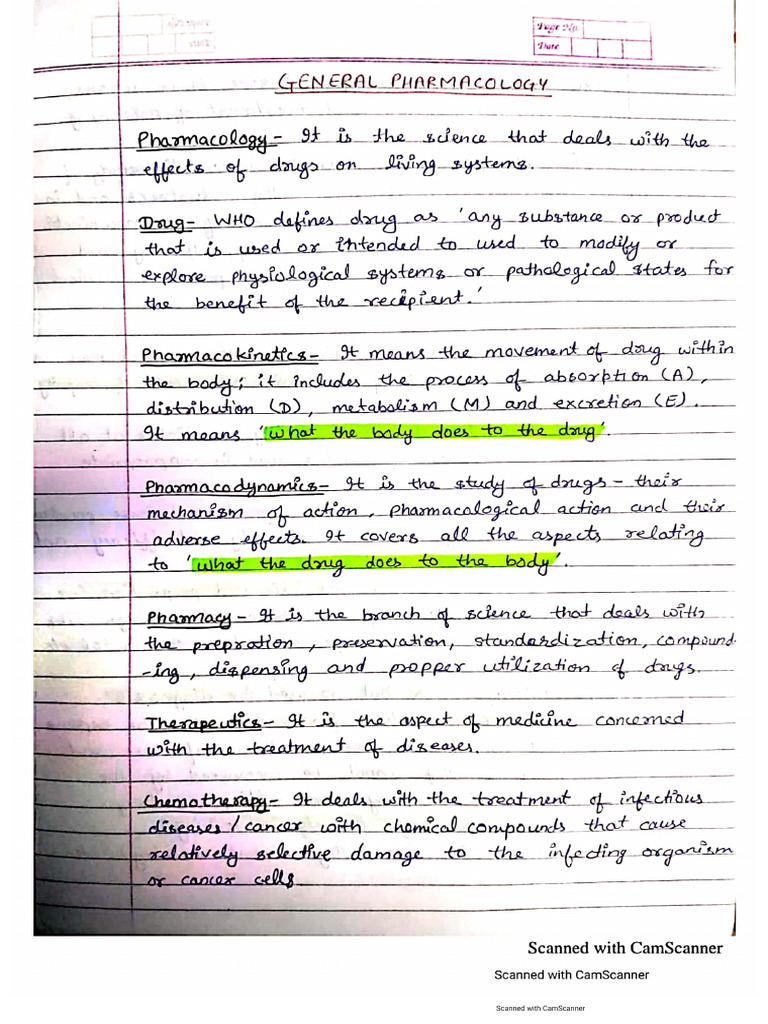 Page No.
Date
GENERAL PHARMACOLOGY
Pharmacology- It is the science that deals with the
effects of drugs on living systems.
Drug- WHO defines drug as 'any substance or product
that is used or intended to used to modify or
explore physiological systems or pathological states for
the benefit of the recipient.'
Pharmacokinetics- It means the movement of drug within
the body; it includes the process of absorption (A),
distribution (D), metabolism (M) and excretion (E).
It means 'what the body does to the drug'.
Pharmacodynamics- It is the study of drugs - their
mechanism of action, pharmacological action and their
adverse effects. It covers all the aspects relating
to 'what the drug does to the body'.
Pharmacy- It is the branch of science that deals with
the prepration, preservation, standardization, compound-
-ing, dispensing and propper utilization of drugs.
Therapeutics- It is the aspect of medicine concerned
with the treatment of diseases.
Chemotherapy- It deals with the treatment of infectious
diseases/cancer with chemical compounds that cause
relatively selective damage to the infecting organism
or cancer cells
Scanned with CamScanner
Scanned with CamScanner
Scanned with CamScanner